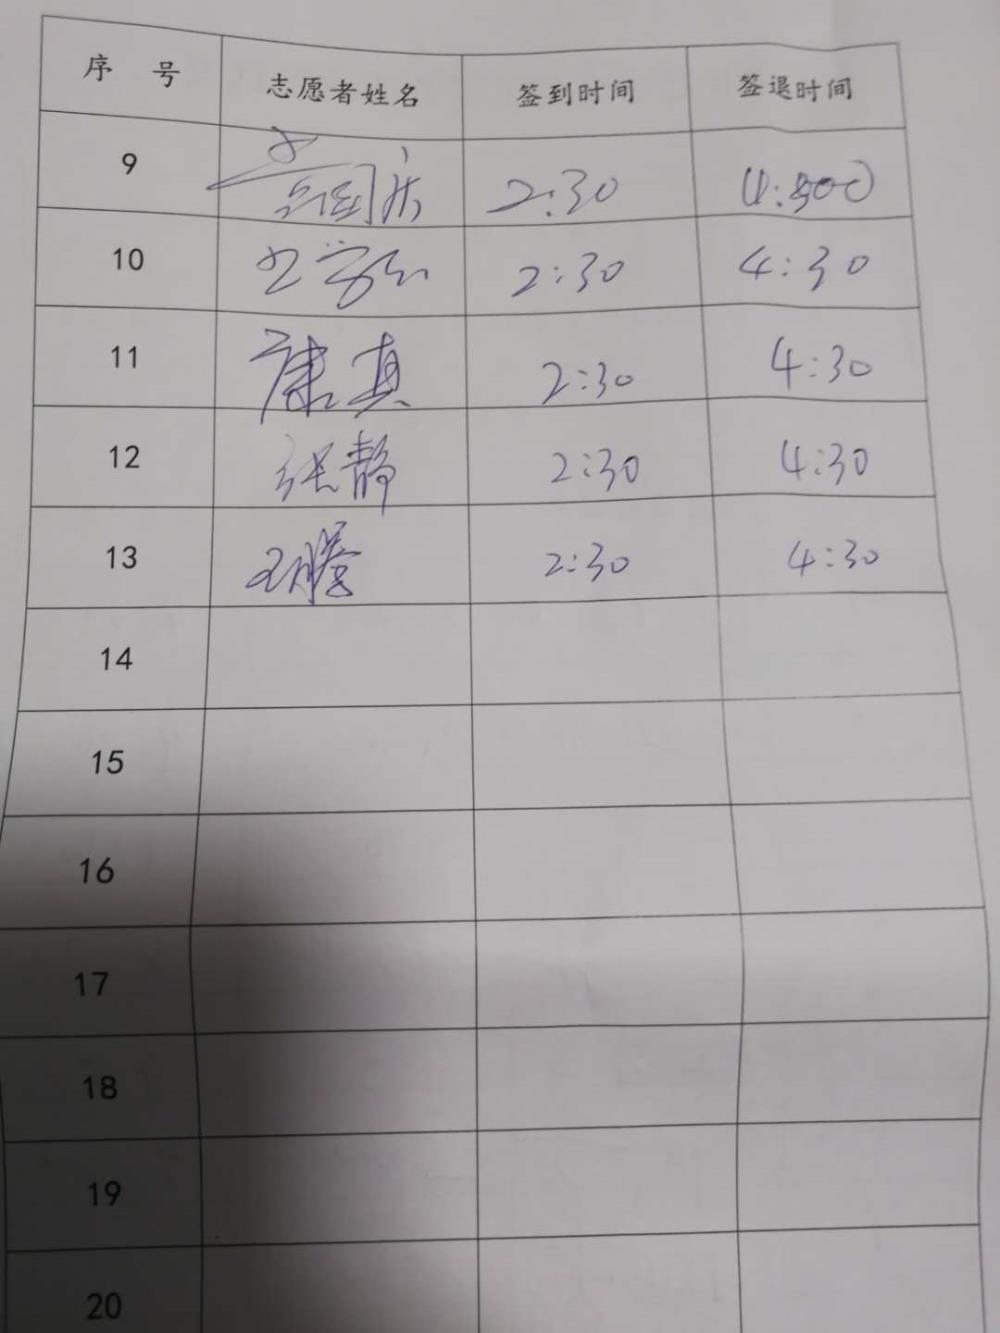 序 号 志愿者姓名 签到时间 签退时间
9 2:30
10 2:30 4:30
11 康真 2:30 4:30
12 张静 2:30 4:30
13 王腾 2:30 4:30
14
15
16
17
18
19
20